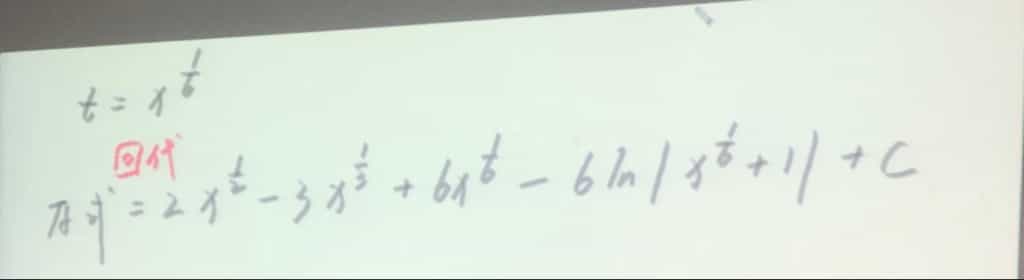 t = x^{\frac{1}{6}}
回代
原式 = 2x^{\frac{1}{2}} - 3x^{\frac{1}{3}} + 6x^{\frac{1}{6}} - 6 ln|x^{\frac{1}{6}} + 1| + C